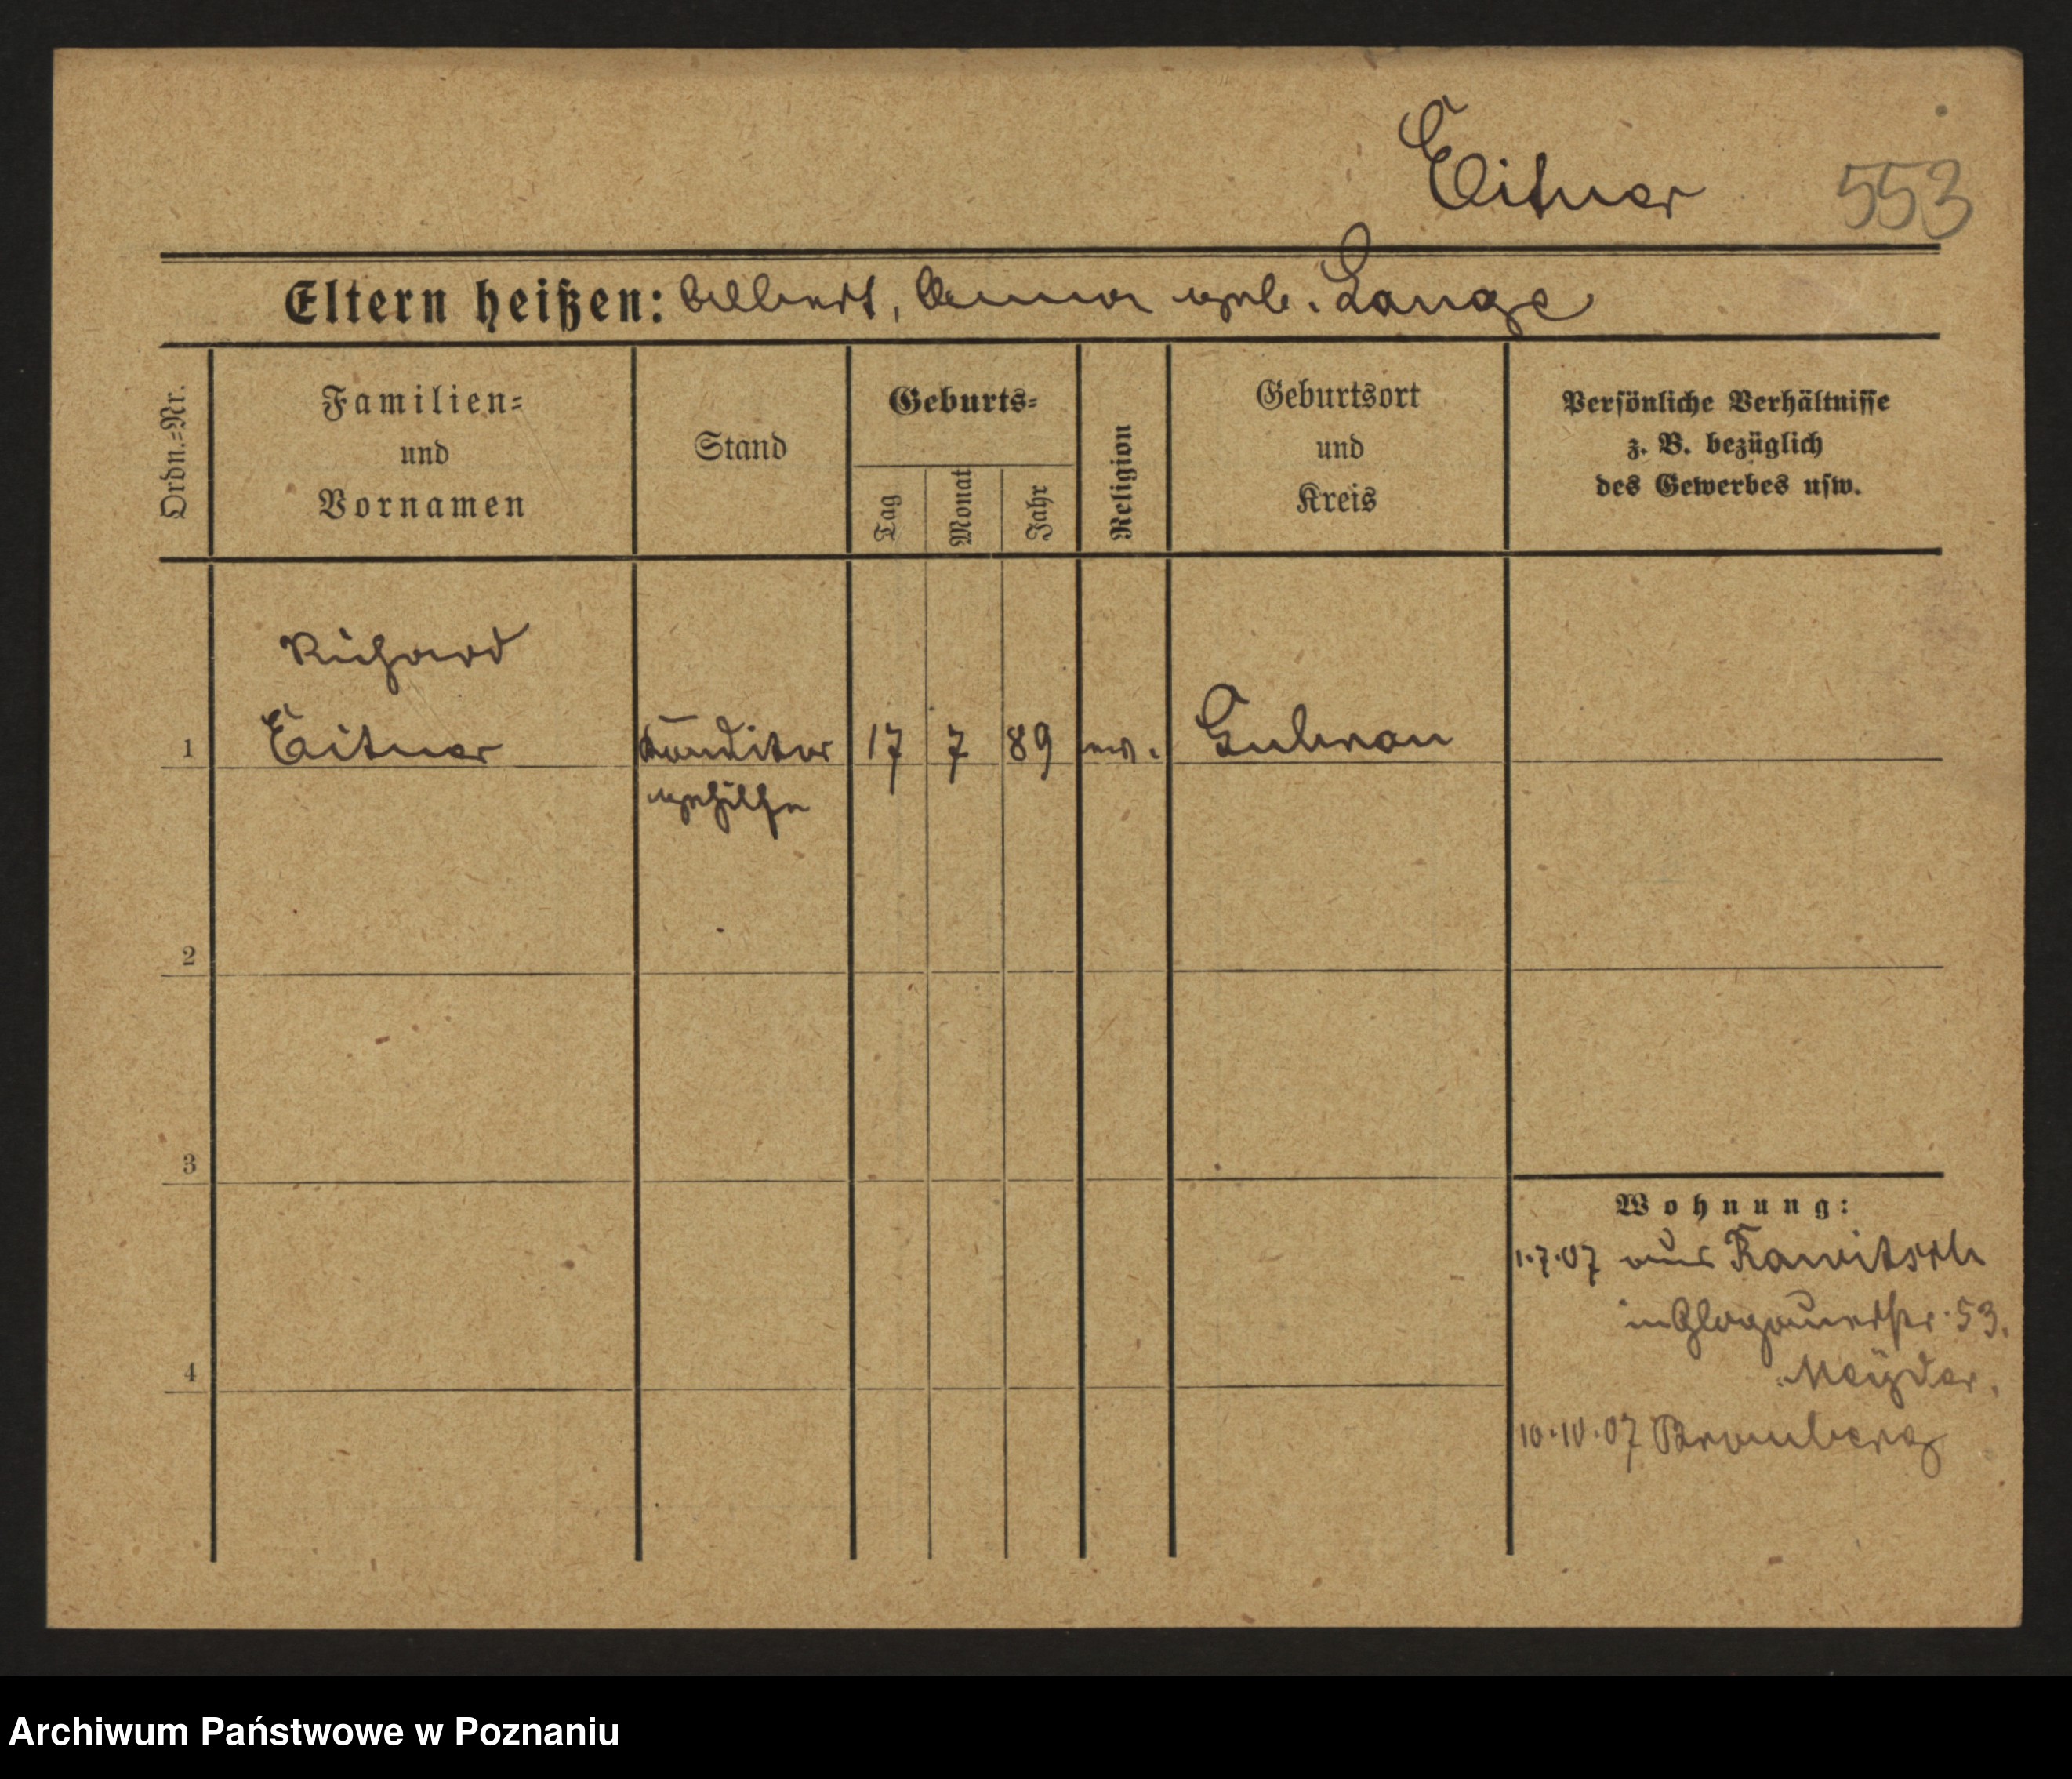 Eitner
553
Eltern heißen: Albert, Anna geb. Lange
Ordn.=Nr.
Familien=
und
Vornamen
Stand
Geburts=
Tag
Monat
Jahr
Religion
Geburtsort
und
Kreis
Persönliche Verhältnisse
z. B. bezüglich
des Gewerbes usw.
Richard
1 Eitner Konditor 17 7 89
gehilfe
2
3
4
Wohnung:
1.7.07 aus Rawitsch
in Glogauerstr. 53.
10.10.07 Bromberg
Archiwum Państwowe w Poznaniu